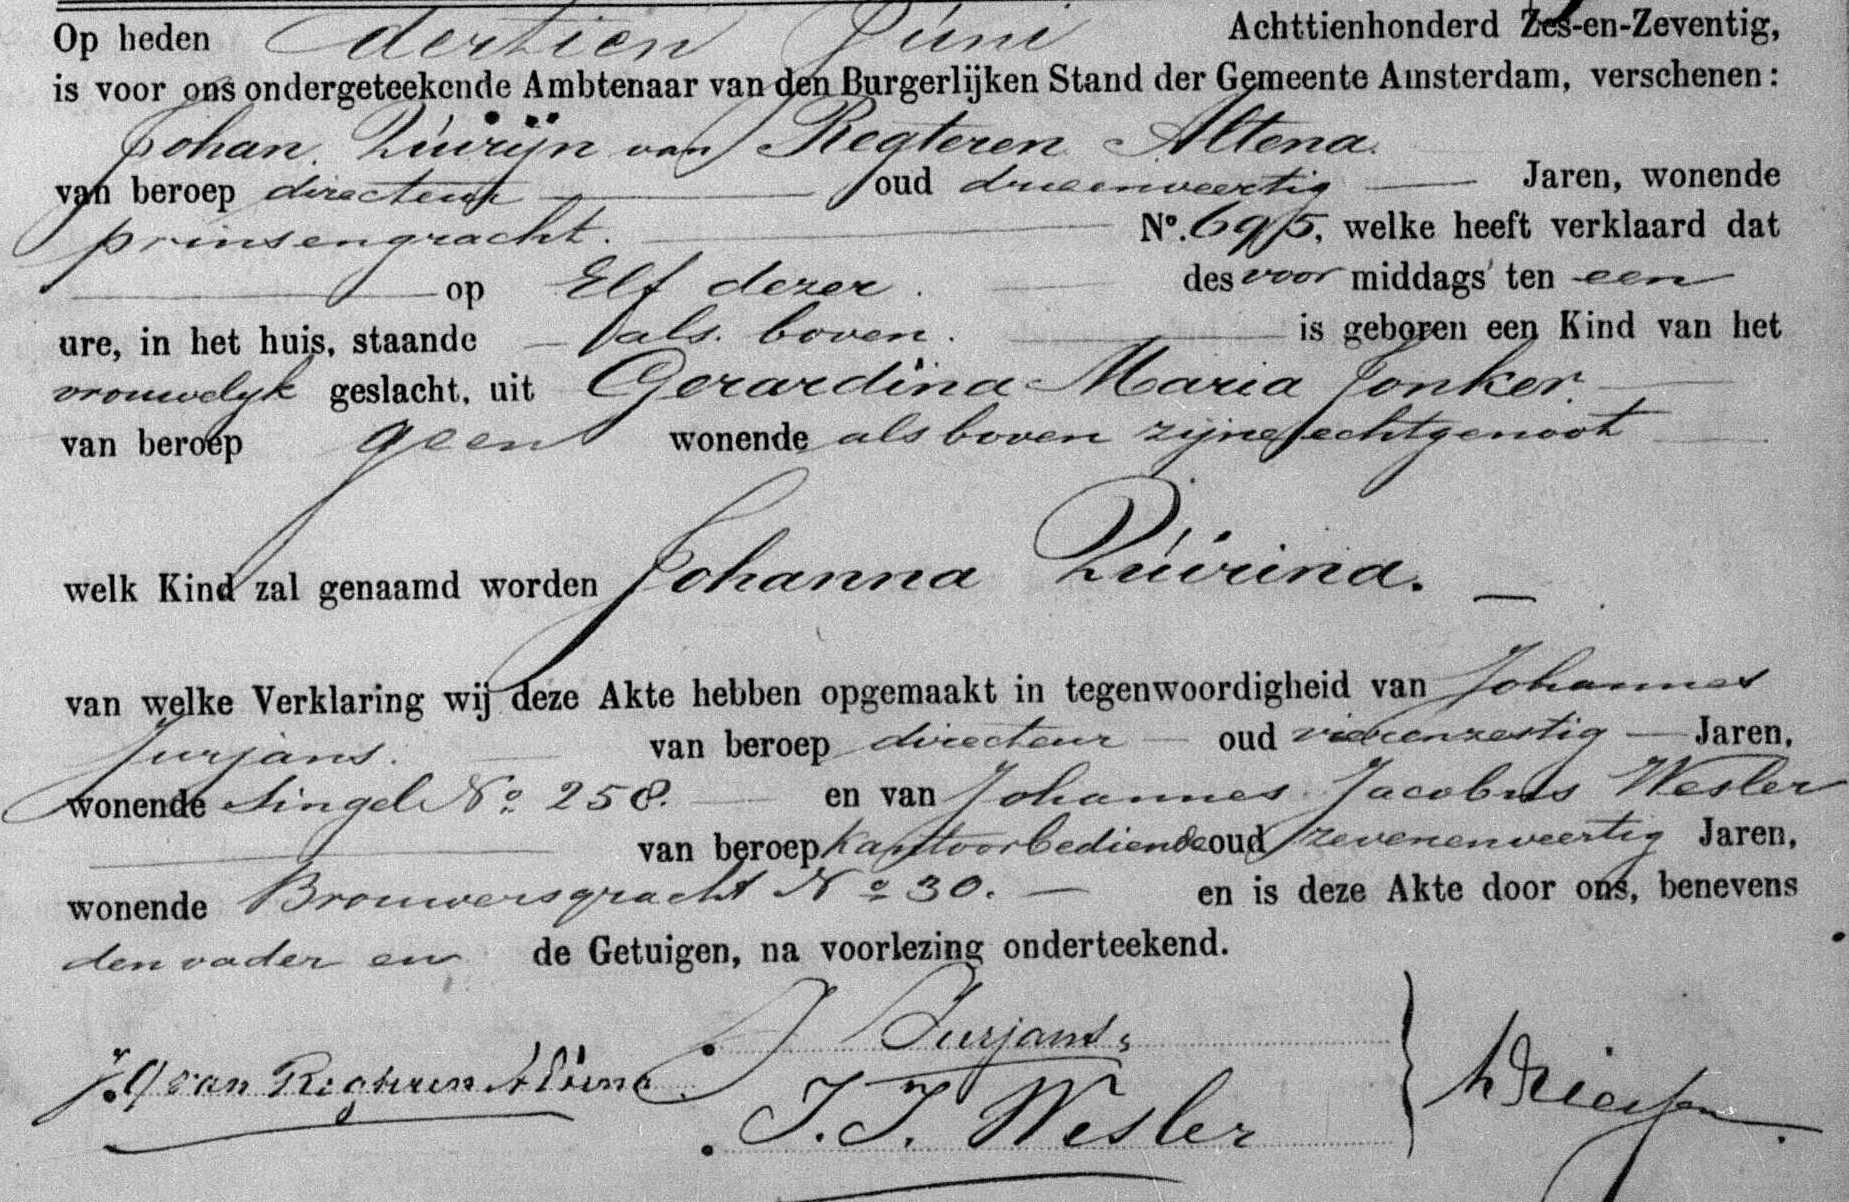 Op heden dertien Juni Achttienhonderd Zes-en-Zeventig,
is voor ons ondergeteekende Ambtenaar van den Burgerlijken Stand der Gemeente Amsterdam, verschenen:
Johan Quirijn van Regteren Altena.
van beroep directeur oud drieenveertig Jaren, wonende
prinsengracht. No. 695, welke heeft verklaard dat
op Elf dezer. des voor middags ten een
ure, in het huis, staande als boven. is geboren een Kind van het
vrouwelyk geslacht, uit Gerardina Maria Jonker.
van beroep geen wonende als boven zijne echtgenoot
welk Kind zal genaamd worden Johanna Quirina.
van welke Verklaring wij deze Akte hebben opgemaakt in tegenwoordigheid van Johannes
Jurjans. van beroep directeur oud vierenzestig Jaren,
wonende Singel No 258. en van Johannes Jacobus Wesler
van beroep kantoorbediende oud zevenenveertig Jaren,
wonende Brouwersgracht No 30. en is deze Akte door ons, benevens
den vader en de Getuigen, na voorlezing onderteekend.
J Jurjans
J.Q van Regteren Altena
J. J. Wesler